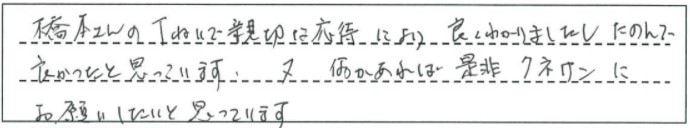 橋本さんの丁ねいで親切な応待により 良くわかりましたし たのんで
良かったと思っています。又 何かあれば 是非 クネサンに
お願いしたいと思っています